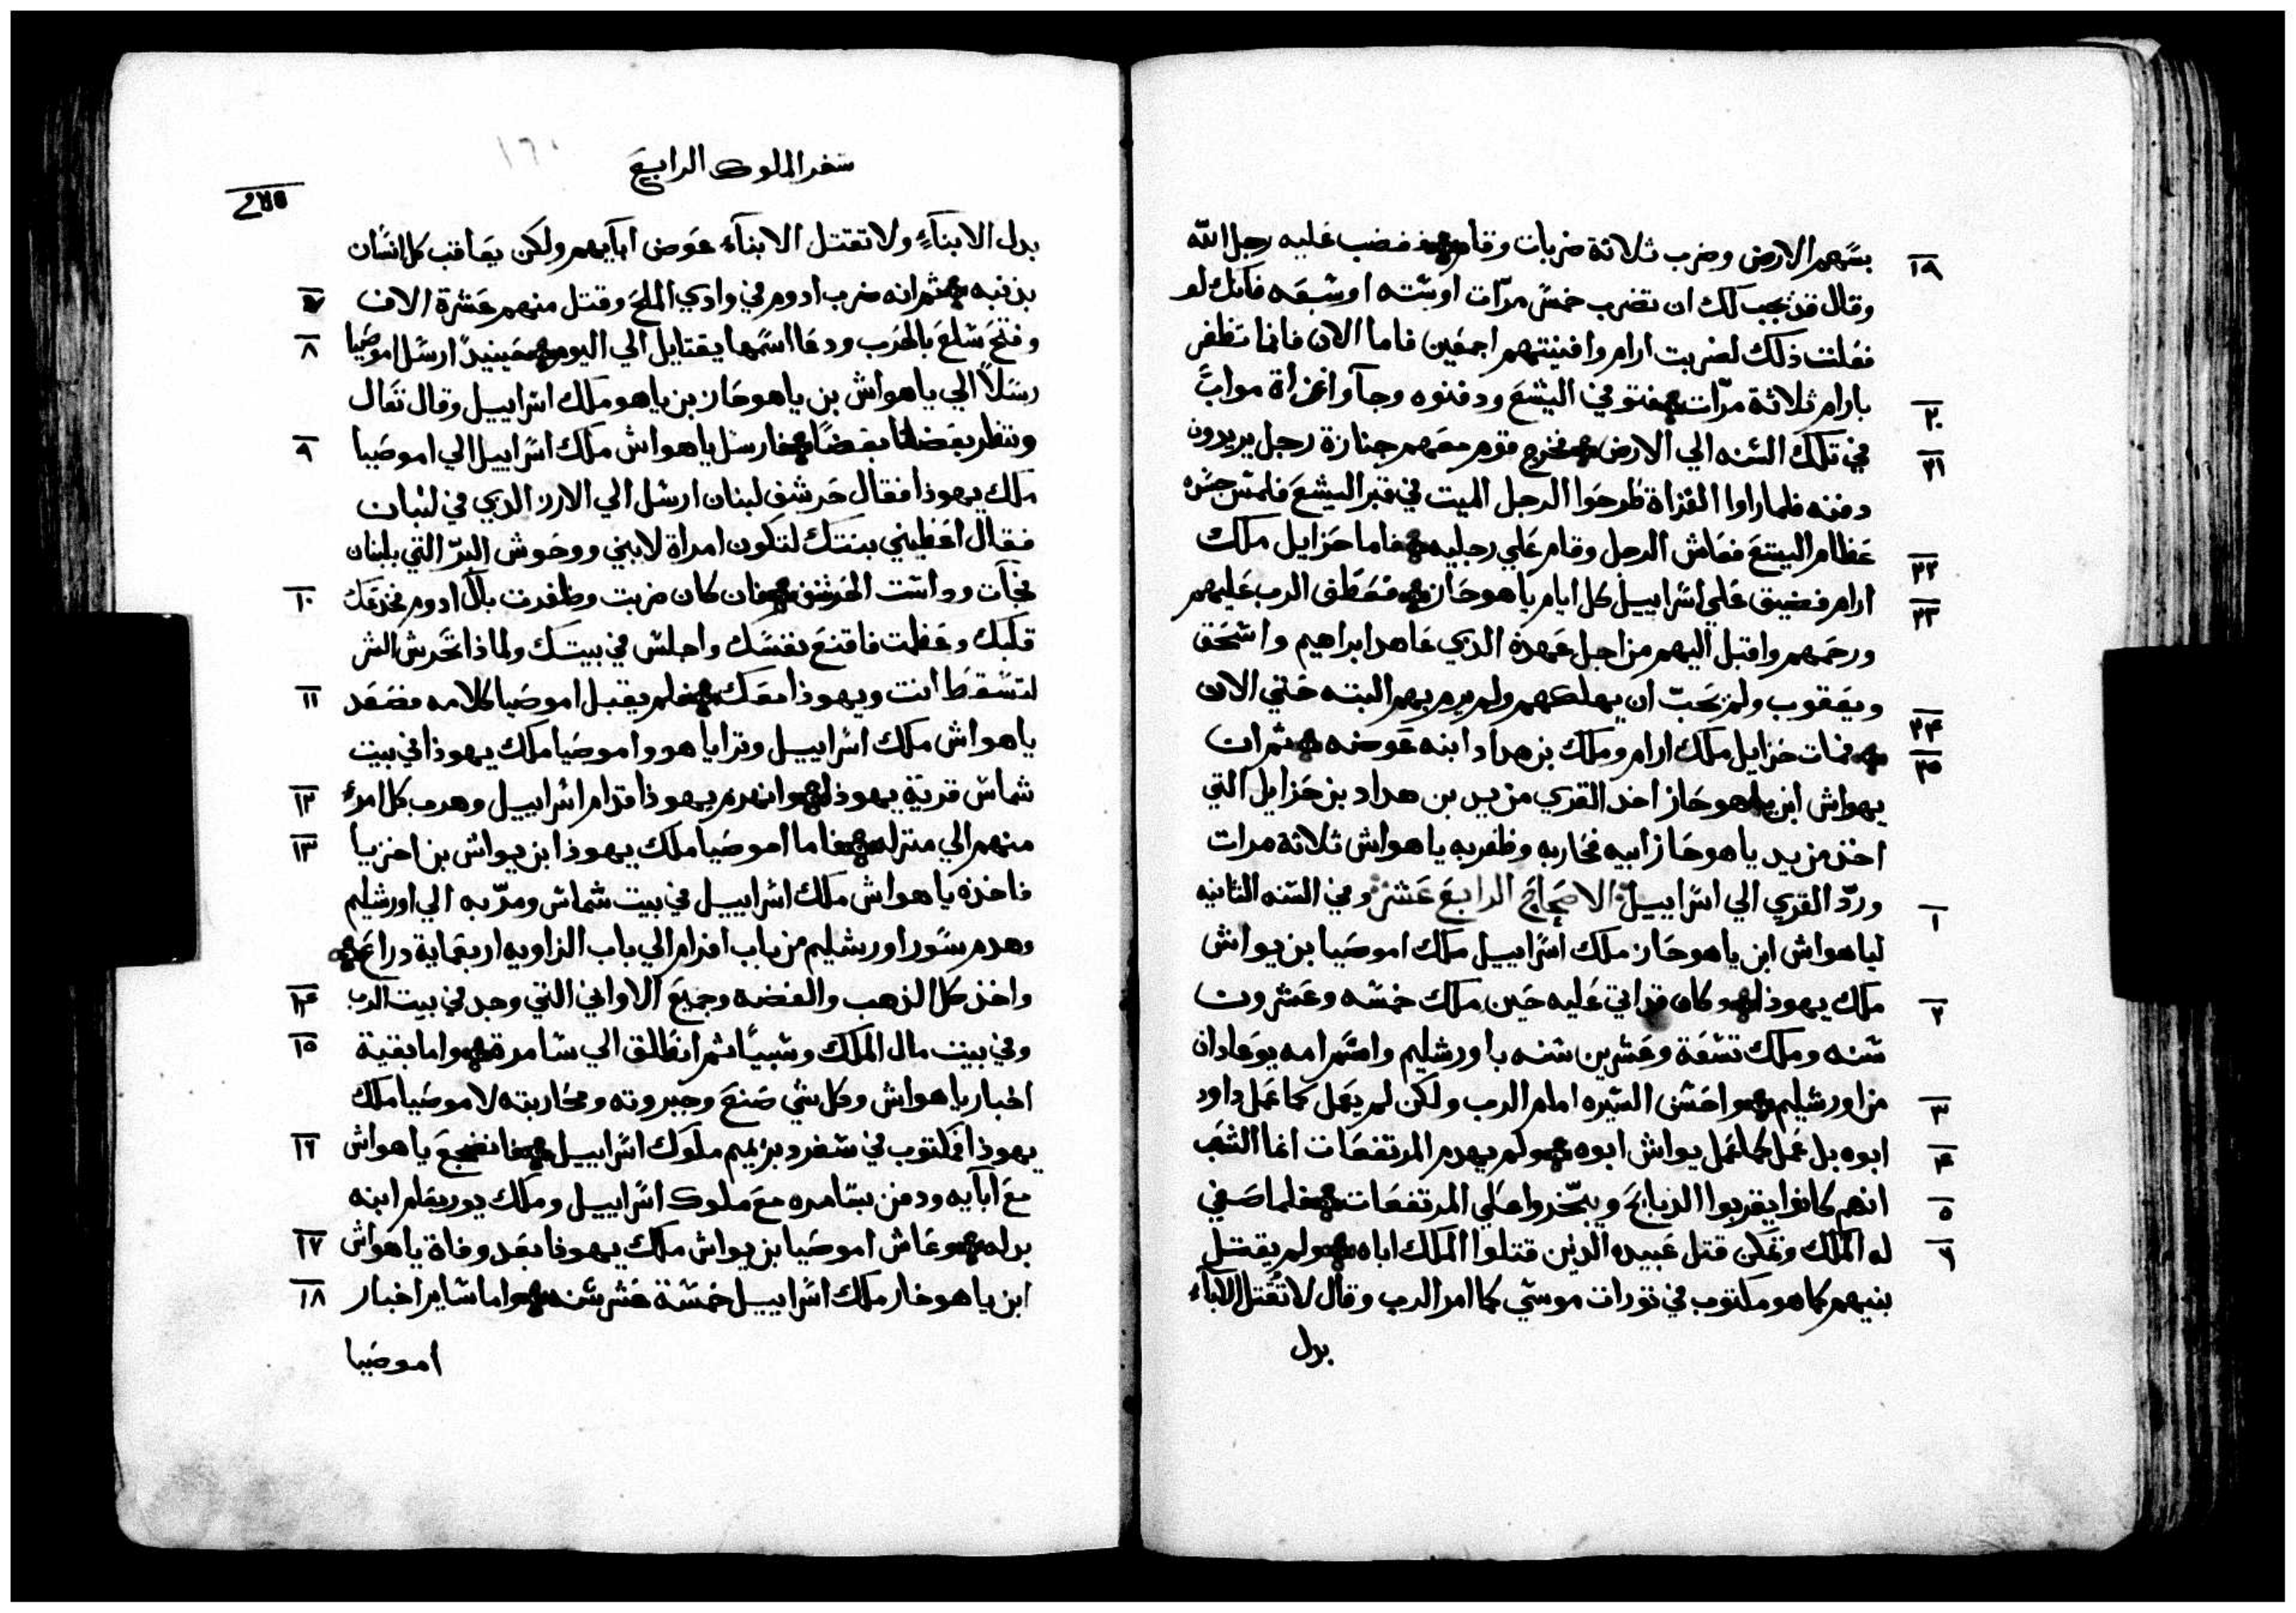 بسهم الارض وضرب ثلاثة ضربات وقام فغضب عليه رجل الله
١٩
وقال قد يجب لك ان تضرب خمس مرّات او سته او سبعه فانك لو
فعلت ذلك لضربت ارام وافنيتهم اجمعين فاما الان فانما تظفر
بارام ثلاثة مرّات فتوفي اليشع ودفنوه وجآوا غزاة مواب
٢٠
في تلك السنه الي الارض فخرج قوم معهم جنازة رجل يريدون
٢١
دفنه فلما راوا الغزاة طرحوا الرجل الميت في قبر اليشع فلمس جسده
عظام اليشع فعاش الرجل وقام علي رجليه فاما حزايل ملك
٢٢
ارام فضيق علي اسراييل كل ايام ياهوحاز فعطف الرب عليهم
٢٣
ورحمهم واقبل اليهم من اجل عهده الذي عاهد ابراهيم واسحق
ويعقوب ولم يحبّ ان يهلكهم ولم يرم بهم البته حتي الان
فمات حزايل ملك ارام وملك بن هداد ابنه عوضه ثم ان
٢٤
٢٥
يهواش ابن ياهوحاز اخذ القري من يد بن هداد بن حزايل التي
اخذ من يد ياهوحاز ابيه فحاربه وظفر به ياهواش ثلاثة مرات
وردّ القري الي اسراييل الاصحاح الرابع عشر وفي السنه الثانيه
١
لياهواش ابن ياهوحاز ملك اسراييل ملك اموصيا بن يواش
ملك يهوذا وكان قد اتي عليه حين ملك خمسه وعشرون
٢
سنه وملك تسعة وعشرين سنه باورشليم واسم امه يوعادان
من اورشليم واحسن السيره امام الرب ولكن لم يعمل كما عمل داود
٣
ابوه بل عمل كما عمل يواش ابوه ولم يهدم المرتفعات انما الشعب
٤
انهم كانوا يقربوا الذبايح ويبخّروا علي المرتفعات فلما صفي
٥
له الملك وتمكن قتل عبيده الذين قتلوا الملك اباه ولم يقتل
٦
بنيهم كما هو مكتوب في تورات موسي كما امر الرب وقال لا تُقتل الاباء
بدل
سفر الملوك الرابع
١٦٠
بدل الابنآء ولا تقتل الابنآء عوض ابآيهم ولكن يعاقب كل انسان
بذنبه ثم انه ضرب ادوم في وادي الملح وقتل منهم عشرة الاف
٧
وفتح سلع بالحرب ودعا اسمها يقتايل الي اليوم حينيذ ارسل اموصيا
٨
رسلاً الي ياهواش بن ياهوحاز بن ياهو ملك اسراييل وقال تعال
وننظر بعضنا بعضاً فارسل ياهواش ملك اسراييل الي اموصيا
٩
ملك يهوذا فقال حرشف لبنان ارسل الي الارز الذي في لبنان
فقال اعطيني بنتك لتكون امراة لابني ووحوش البرّ التي بلبنان
فجآت وداست الحرشف فان كان ضربت وظفرت بال ادوم فخدعك
١٠
قلبك وعظمت فاقنع نفسك واجلس في بيتك ولماذا تحرش الشر
لتسقط انت ويهوذا معك فلم يقبل اموصيا كلامه فصعد
١١
ياهواش ملك اسراييل وترايا هو واموصيا ملك يهوذا في بيت
شماس قرية يهوذا وانهزم يهوذا قدام اسراييل وهرب كل امرء
١٢
منهم الي منزله فاما اموصيا ملك يهوذا ابن يواش بن اخزيا
١٣
فاخذه ياهواش ملك اسراييل في بيت شماس ومرّ به الي اورشليم
وهدم سور اورشليم من باب افرام الي باب الزاويه اربعماية دراع
واخذ كل الذهب والفضه وجميع الاواني التي وجد في بيت الرب
١٤
وفي بيت مال الملك وسبياً ثم انطلق الي سامرة واما بقية
١٥
اخبار ياهواش وكل شي صنع وجبروته ومحاربته لاموصيا ملك
يهوذا فمكتوب في سفر دبر يميم ملوك اسراييل فانضجع ياهواش
١٦
مع ابآيه ودفن بسامره مع ملوك اسراييل وملك يوربعام ابنه
بدله وعاش اموصيا بن يواش ملك يهوذا بعد وفاة ياهواش
١٧
ابن ياهوحاز ملك اسراييل خمسة عشر سنه واما ساير اخبار
١٨
اموصيا